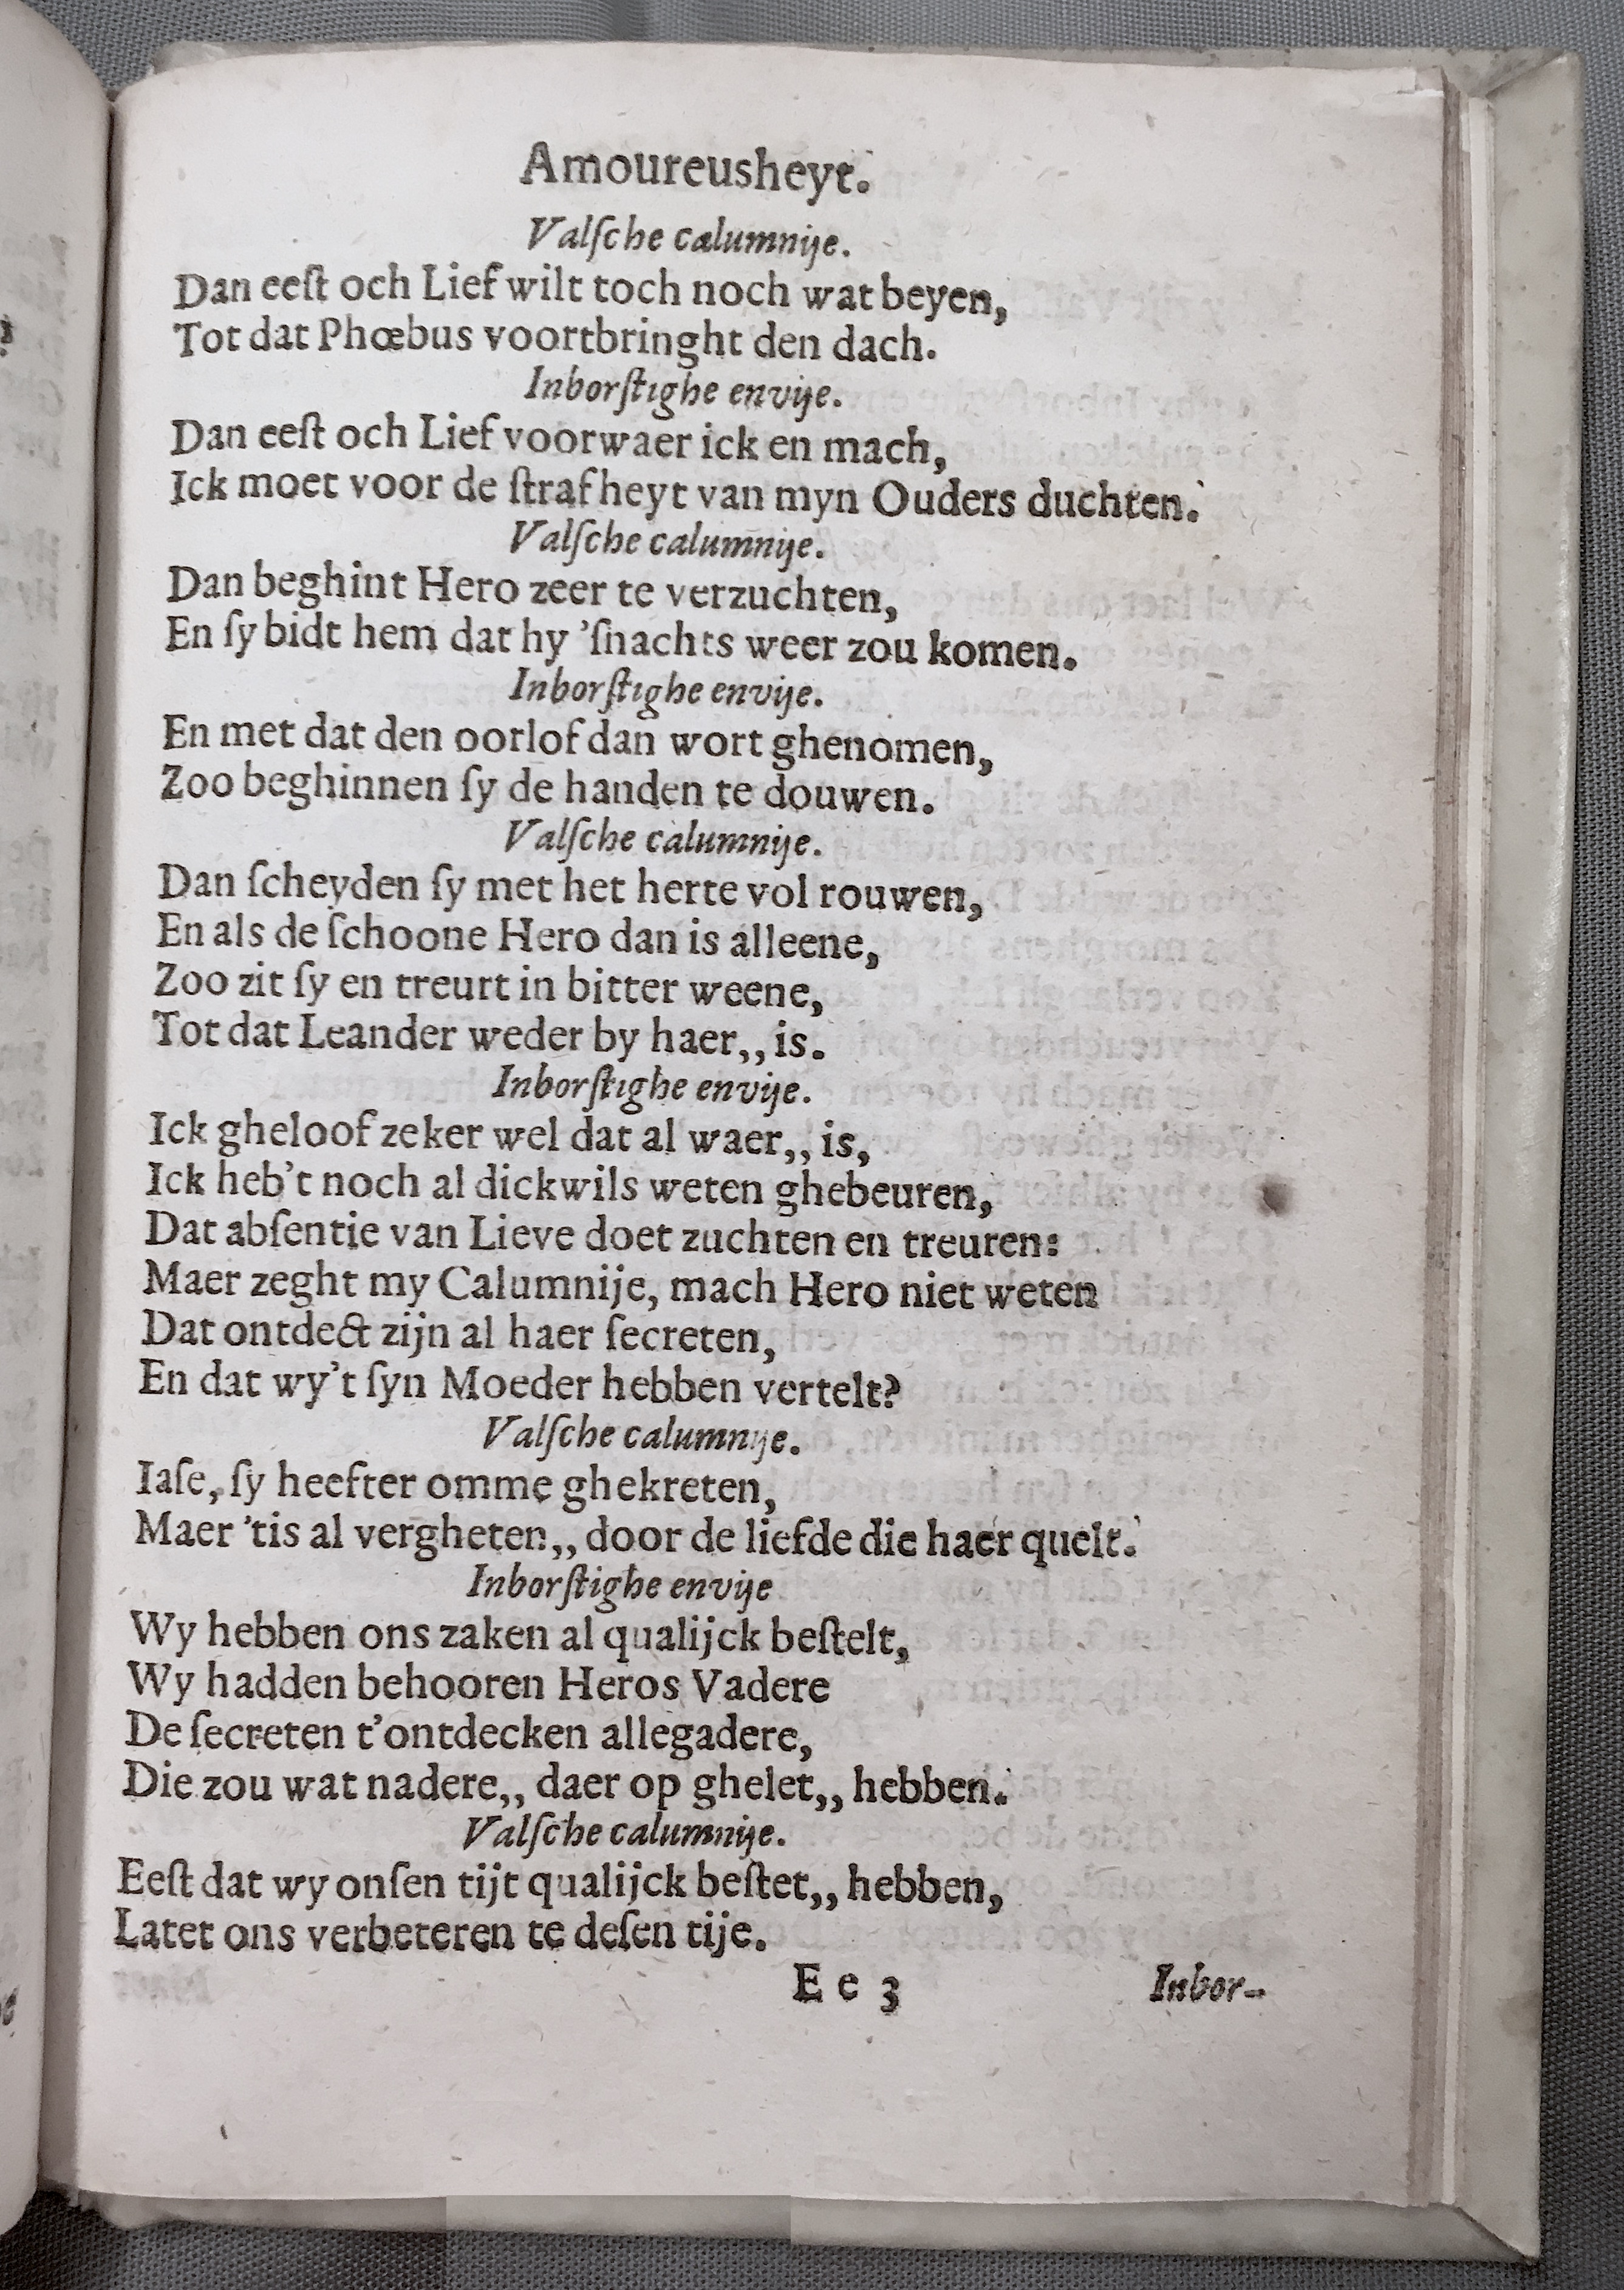 Amoureusheyt.
Valſche calumnije.
Dan eeſt och Lief wilt toch noch wat beyen,
Tot dat Phœbus voortbringht den dach.
Inborſtighe envije.
Dan eeſt och Lief voorwaer ick en mach,
Ick moet voor de ſtrafheyt van myn Ouders duchten.
Valſche calumnije.
Dan beghint Hero zeer te verzuchten,
En ſy bidt hem dat hy 'ſnachts weer zou komen.
Inborſtighe envije.
En met dat den oorlof dan wort ghenomen,
Zoo beghinnen ſy de handen te douwen.
Valſche calumnije.
Dan ſcheyden ſy met het herte vol rouwen,
En als de ſchoone Hero dan is alleene,
Zoo zit ſy en treurt in bitter weene,
Tot dat Leander weder by haer,, is.
Inborſtighe envije.
Ick gheloof zeker wel dat al waer,, is,
Ick heb't noch al dickwils weten ghebeuren,
Dat abſentie van Lieve doet zuchten en treuren:
Maer zeght my Calumnije, mach Hero niet weten
Dat ontdect zijn al haer ſecreten,
En dat wy't ſyn Moeder hebben vertelt?
Valſche calumnije.
Iaſe, ſy heefter omme ghekreten,
Maer 'tis al vergheten,, door de liefde die haer quelt.
Inborſtighe envije
Wy hebben ons zaken al qualijck beſtelt,
Wy hadden behooren Heros Vadere
De ſecreten t'ontdecken allegadere,
Die zou wat nadere,, daer op ghelet,, hebben.
Valſche calumnije.
Eeſt dat wy onſen tijt qualijck beſtet,, hebben,
Latet ons verbeteren te deſen tije.
Ee 3 Inbor-